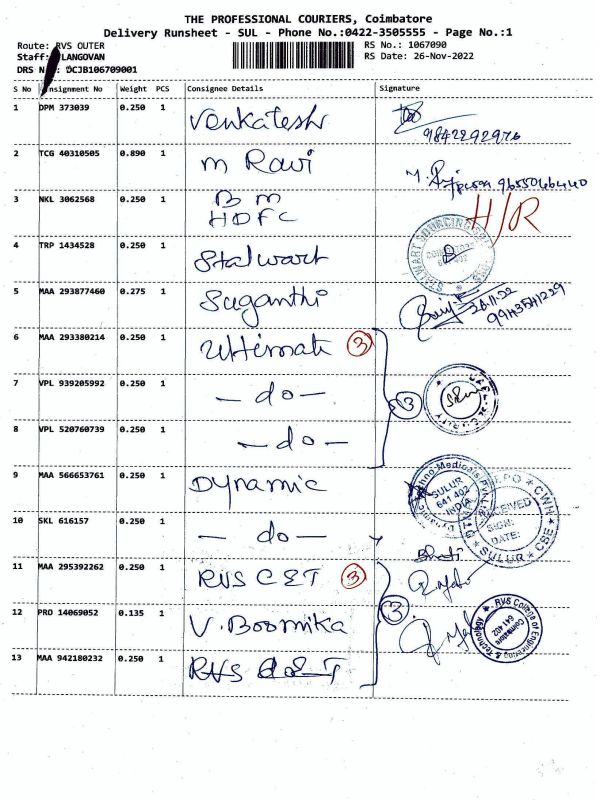 THE PROFESSIONAL COURIERS, Coimbatore
Delivery Runsheet - SUL - Phone No.:0422-3505555 - Page No.:1
Route: RVS OUTER
RS No.: 1067090
Staff: LANGOVAN
RS Date: 26-Nov-2022
DRS N : DCJB106709001
S No onsignment No Weight PCS Consignee Details Signature
1 DPM 373039 0.250 1 Venkatesh
9842292976
2 TCG 40310505 0.890 1 M Ravi
9655046440
3 NKL 3062568 0.250 1 BM
HDFC
H/R
4 TRP 1434528 0.250 1 Stalwart
5 MAA 293877460 0.275 1 Suganthi
26.11.22
6 MAA 293380214 0.250 1 Ultimate 3
7 VPL 939205992 0.250 1 - do - 3
8 VPL 520760739 0.250 1 - do -
9 MAA 566653761 0.250 1 Dynamic
SULUR
641 402
INDIA
10 SKL 616157 0.250 1 - do -
RECEIVED
SIGN:
DATE:
SULUR
11 MAA 295392262 0.250 1 RVS CET 3
12 PRO 14069052 0.135 1 V. Boomika 3
RVS College of Engineering & Technology
Coimbatore
641 402
13 MAA 942180232 0.250 1 RVS